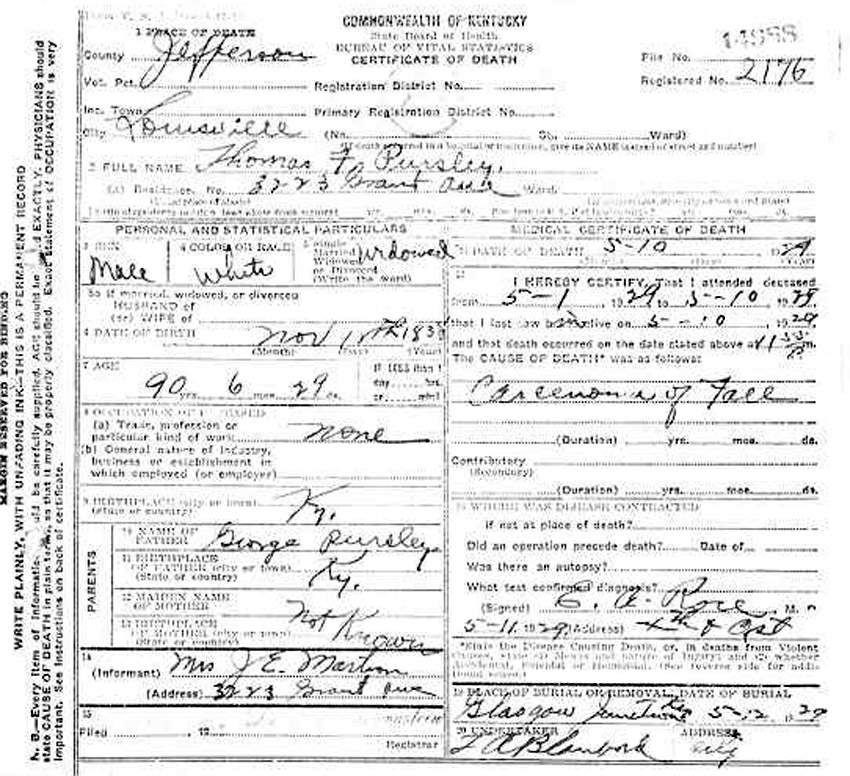 COMMONWEALTH OF KENTUCKY
State Board of Health
BUREAU OF VITAL STATISTICS
CERTIFICATE OF DEATH
1 PLACE OF DEATH
County Jefferson
File No.
Registered No. 2176
Vot. Pct. Registration District No.
Inc. Town Primary Registration District No.
City Louisville (No. St. Ward)
(If death occurred in a hospital or institution, give its NAME instead of street and number)
2 FULL NAME Thomas F. Pursley.
(a) Residence. No. 3223 Grant Ave Ward.
PERSONAL AND STATISTICAL PARTICULARS
3 SEX Male
4 COLOR OR RACE White
5 Single Married Widowed or Divorced (Write the word) Widowed
5a If married, widowed, or divorced
HUSBAND of
(or) WIFE of
6 DATE OF BIRTH Nov
(Month) (Day) (Year)
7 AGE
90 yrs. 6 mos. 29 ds.
IF LESS than 1
day hrs.
or min?
8 OCCUPATION OF DECEASED
(a) Trade, profession or
particular kind of work none
(b) General nature of industry,
business or establishment in
which employed (or employer)
9 BIRTHPLACE (city or town)
(State or country) Ky.
PARENTS
10 NAME OF
FATHER George Pursley
11 BIRTHPLACE
OF FATHER (city or town)
(State or country) Ky.
12 MAIDEN NAME
OF MOTHER Not Known
13 BIRTHPLACE
OF MOTHER (city or town)
(State or country)
14
(Informant) Mrs J. E.
(Address) 3223 Grant Ave
15
Filed 19
Registrar
MEDICAL CERTIFICATE OF DEATH
DATE OF DEATH 5-10 1929
I HEREBY CERTIFY, That I attended deceased
from 5-1 1929 to 5-10 1929
that I last saw him alive on 5-10 1929
and that death occurred on the date stated above at m.
The CAUSE OF DEATH* was as follows:
Carcenoma of Face
(Duration) yrs. mos. ds.
Contributory
(Secondary)
(Duration) yrs. mos. ds.
WHERE WAS DISEASE CONTRACTED
if not at place of death?
Did an operation precede death? Date of
Was there an autopsy?
What test confirmed diagnosis?
(Signed) M.
5-11 1929 (Address)
*State the Disease Causing Death, or, in deaths from Violent
Causes, state (1) Means and nature of Injury; and (2) whether
Accidental, Suicidal or Homicidal. (See reverse side for addi-
tional space.)
19 PLACE OF BURIAL OR REMOVAL DATE OF BURIAL
Glasgow Junction Ky 5-12 1929
20 UNDERTAKER ADDRESS
City
MARGIN RESERVED FOR BINDING
WRITE PLAINLY, WITH UNFADING INK—THIS IS A PERMANENT RECORD
N. B.—Every item of information should be carefully supplied. AGE should be stated EXACTLY. PHYSICIANS should
state CAUSE OF DEATH in plain terms, so that it may be properly classified. Exact statement of OCCUPATION is very
important. See instructions on back of certificate.